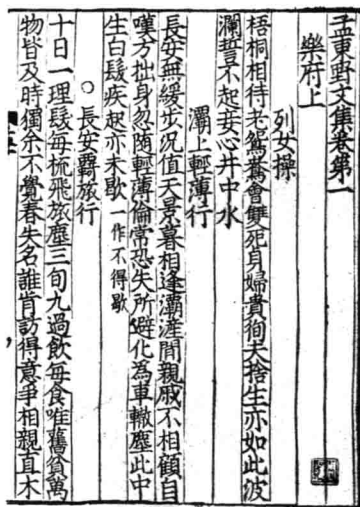 孟東野文集卷第一
樂府上
列女操
梧桐相待老鴛鴦會雙死貞婦貴徇夫捨生亦如此波
瀾誓不起妾心井中水
灞上輕薄行
長安無緩步况值天景暮相逢灞滻間親戚不相顧自
嘆方拙身忽随輕薄倫常恐失所避化為車轍塵此中
生白髮疾起亦未歇一作不得歇
○長安羇旅行
十日一理髮每梳飛旅塵三旬九過飲每食唯舊貧萬
物皆及時獨余不覺春失名誰肯訪得意爭相親直木